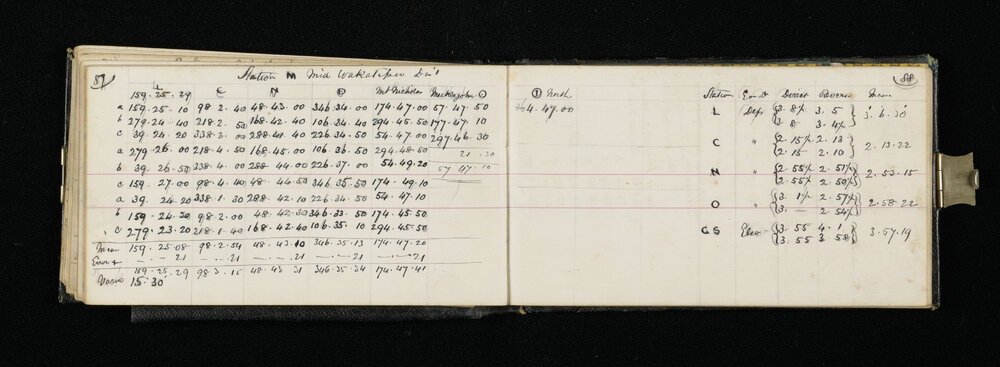 87
Station M Mid Wakatipu Dis't
L C N O Mt Nicholas ⊙
159.25.29
a 159.25.10 98.2.40 48.43.00 346.34.00 174.47.00 57.47.50
b 279.24.40 218.2.50 168.42.40 106.34.40 294.45.50 177.47.10
c 39.24.20 338.2.00 288.41.40 226.34.50 54.47.00 297.46.30
a 279.26.00 218.4.50 168.45.00 106.36.50 294.48.50 21.30
b 39.26.50 338.4.00 288.44.00 226.37.00 54.49.20 57 47.10
c 159.27.00 98.4.40 48.44.50 346.35.50 174.49.10
a 39.24.20 338.1.30 288.42.10 226.34.50 54.47.10
b 159.24.30 98.2.00 48.42.30 346.33.50 174.45.50
c 279.23.20 218.1.40 168.42.40 106.35.10 294.45.50
Mean 159.25.08 98.2.54 48.43.10 346.35.13 174.47.20
Error + —.—21 —.—21 —.—21 —.21 —21
159.25.29 98 3.15 48.43 31 346.35.34 174.47.41
15.30
88
① North
4.49.00
Station Direct Reverse Mean
L Dep 3.8½ 3.5 3.6.30
3.8 3.4½
C " 2.15½ 2.13 2.13.22
2.15 2.10
N " 2.55½ 2.51½ 2.53.15
2.55½ 2.50½
O " 3.1½ 2.57½ 2.58.22
3.— 2.54½
G.S Elev 3.55 4.1 3.57.19
3.55 3.58